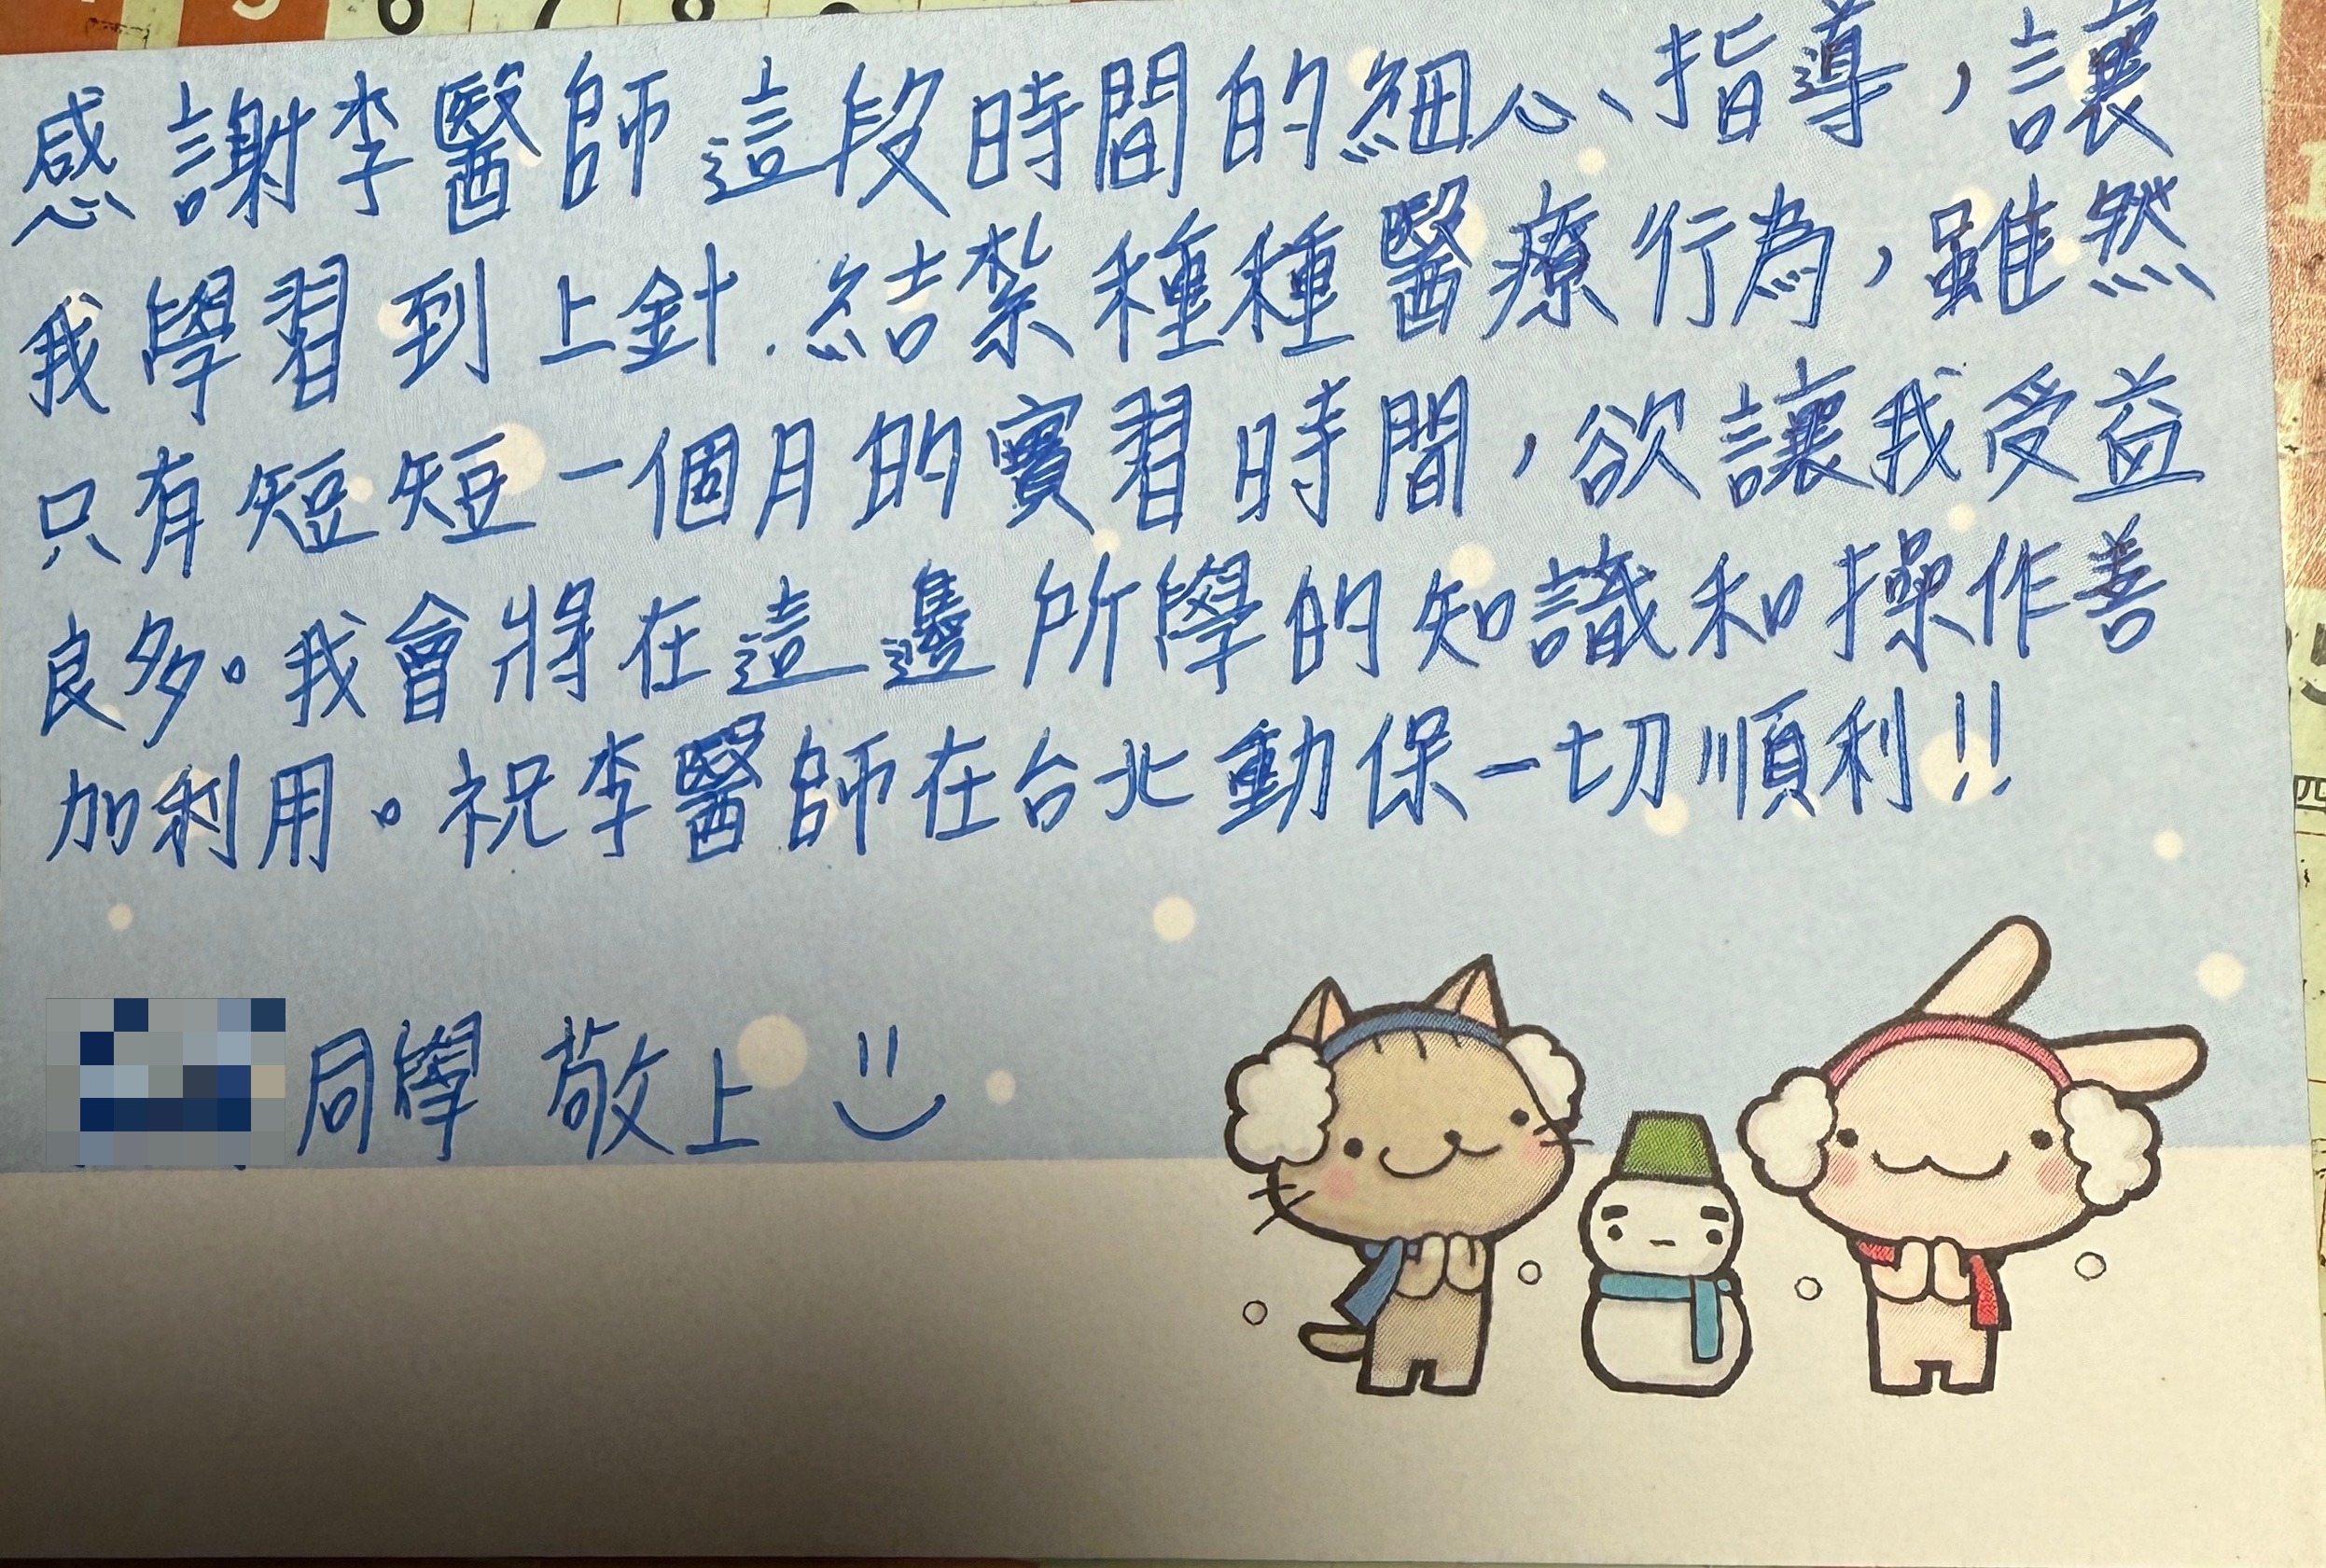 5 6 7 8
感謝李醫師這段時間的細心、指導，讓
我學習到上針.結紮種種醫療行為，雖然
只有短短一個月的實習時間，欲讓我受益
良多。我會將在這邊所學的知識和操作善
加利用。祝李醫師在台北動保一切順利!!
同學 敬上